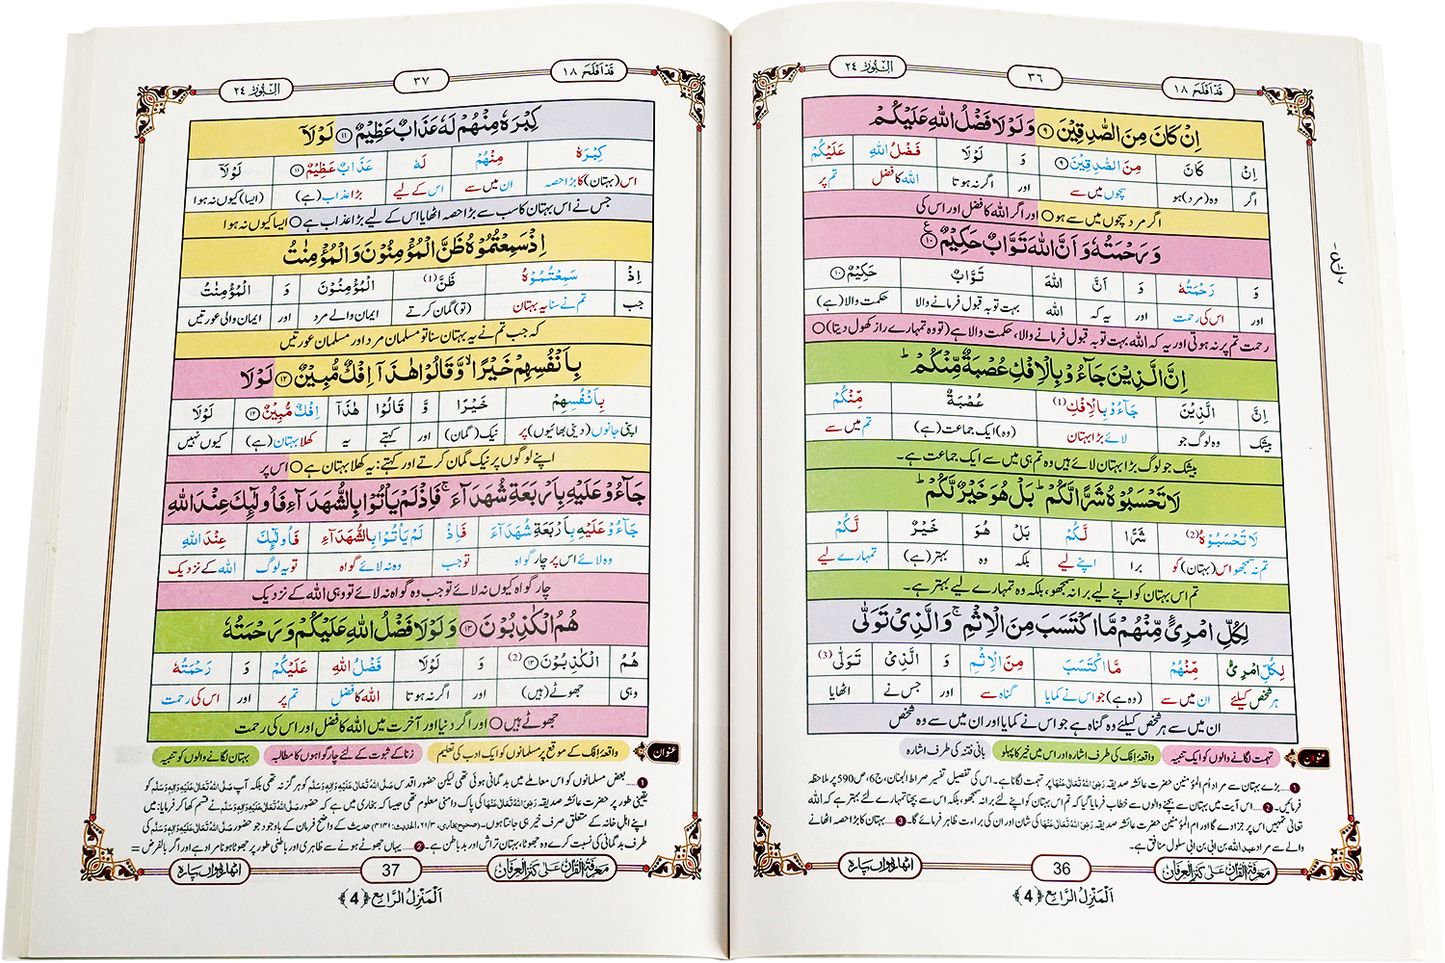 قد افلح ١٨
٣٦
النور ٢٤
اِنْ كَانَ مِنَ الصّٰدِقِیْنَ ۹ وَ لَوْ لَا فَضْلُ اللّٰهِ عَلَیْكُمْ
اِنْ كَانَ مِنَ الصّٰدِقِیْنَ ۹ وَ لَوْلَا فَضْلُ اللّٰهِ عَلَیْكُمْ
اگر وہ (مرد) ہو سچوں میں سے اور اگر نہ ہوتا اللہ کا فضل تم پر
اگر مرد سچوں میں سے ہو ○ اور اگر اللہ کا فضل اور اس کی
وَ رَحْمَتُهٗ وَ اَنَّ اللّٰهَ تَوَّابٌ حَكِیْمٌ ۱۰ ع
وَ رَحْمَتُهٗ وَ اَنَّ اللّٰهَ تَوَّابٌ حَكِیْمٌ ۱۰
اور اس کی رحمت اور یہ کہ اللہ بہت توبہ قبول فرمانے والا حکمت والا (ہے)
رحمت تم پر نہ ہوتی اور یہ کہ اللہ بہت توبہ قبول فرمانے والا، حکمت والا ہے (تو وہ تمہارے راز کھول دیتا) ○
اِنَّ الَّذِیْنَ جَآءُوْ بِالْاِفْكِ عُصْبَةٌ مِّنْكُمْ ؕ
اِنَّ الَّذِیْنَ جَآءُوْ بِالْاِفْكِ (1) عُصْبَةٌ مِّنْكُمْ
بیشک وہ لوگ جو لائے بڑا بہتان (وہ) ایک جماعت (ہے) تم میں سے
بیشک جو لوگ بڑا بہتان لائے ہیں وہ تم ہی میں سے ایک جماعت ہے۔
لَا تَحْسَبُوْهُ شَرًّا لَّكُمْ ؕ بَلْ هُوَ خَیْرٌ لَّكُمْ ؕ
لَا تَحْسَبُوْهُ (2) شَرًّا لَّكُمْ بَلْ هُوَ خَیْرٌ لَّكُمْ
تم نہ سمجھو اس (بہتان) کو برا اپنے لیے بلکہ وہ بہتر (ہے) تمہارے لیے
تم اس بہتان کو اپنے لیے برا نہ سمجھو، بلکہ وہ تمہارے لیے بہتر ہے۔
لِكُلِّ امْرِئٍ مِّنْهُمْ مَّا اكْتَسَبَ مِنَ الْاِثْمِ ۚ وَ الَّذِیْ تَوَلّٰى
لِكُلِّ امْرِئٍ مِّنْهُمْ مَّا اكْتَسَبَ مِنَ الْاِثْمِ وَ الَّذِیْ تَوَلّٰى (3)
ہر شخص کیلئے ان میں سے (وہ ہے) جو اس نے کمایا گناہ سے اور جس نے اٹھایا
ان میں سے ہر شخص کیلئے وہ گناہ ہے جو اس نے کمایا اور ان میں سے وہ شخص
عنوان تہمت لگانے والوں کو ایک تنبیہ واقعۂ اِفک کی طرف اشارہ اور اس میں خیر کا پہلو بانی فتنہ کی طرف اشارہ
1.....بڑے بہتان سے مراد اُم المؤمنین حضرت عائشہ صدیقہ رَضِیَ اللہُ تَعَالٰی عَنْہَا پر تہمت لگانا ہے۔ اس کی تفصیل تفسیر صراط الجنان، ج6، ص590 پر ملاحظہ
فرمائیں۔ 2.....اس آیت میں بہتان سے بچنے والوں سے خطاب فرمایا گیا کہ تم اس بہتان کو اپنے لئے برا نہ سمجھو، بلکہ اس سے بچنا تمہارے لئے بہتر ہے کہ اللہ
تعالیٰ تمہیں اس پر جزا دے گا اور ام المؤمنین حضرت عائشہ صدیقہ رَضِیَ اللہُ تَعَالٰی عَنْہَا کی شان اور ان کی براءت ظاہر فرمائے گا۔ 3.....بہتان کا بڑا حصہ اٹھانے
والے سے مراد عبداللہ بن ابی بن ابی سلول منافق ہے۔
معرفۃ القرآن علٰی کنز العرفان
36
اٹھارہواں پارہ
اَلْمَنْزِلُ الرَّابِع ﴿4﴾
قد افلح ١٨
٣٧
النور ٢٤
كِبْرَهٗ مِنْهُمْ لَهٗ عَذَابٌ عَظِیْمٌ ۱۱ لَوْ لَاۤ
كِبْرَهٗ مِنْهُمْ لَهٗ عَذَابٌ عَظِیْمٌ ۱۱ لَوْلَاۤ
اس (بہتان) کا بڑا حصہ ان میں سے اس کے لیے بڑا عذاب (ہے) (ایسا) کیوں نہ ہوا
جس نے اس بہتان کا سب سے بڑا حصہ اٹھایا اس کے لیے بڑا عذاب ہے ○ ایسا کیوں نہ ہوا
اِذْ سَمِعْتُمُوْهُ ظَنَّ الْمُؤْمِنُوْنَ وَ الْمُؤْمِنٰتُ
اِذْ سَمِعْتُمُوْهُ ظَنَّ (1) الْمُؤْمِنُوْنَ وَ الْمُؤْمِنٰتُ
جب تم نے سنا یہ بہتان (تو) گمان کرتے ایمان والے مرد اور ایمان والی عورتیں
کہ جب تم نے یہ بہتان سنا تو مسلمان مرد اور مسلمان عورتیں
بِاَنْفُسِهِمْ خَیْرًا ۙ وَّ قَالُوْا هٰذَاۤ اِفْكٌ مُّبِیْنٌ ۱۲ لَوْ لَا
بِاَنْفُسِهِمْ خَیْرًا وَّ قَالُوْا هٰذَاۤ اِفْكٌ مُّبِیْنٌ ۱۲ لَوْلَا
اپنی جانوں (دینی بھائیوں) پر نیک (گمان) اور کہتے یہ کھلا بہتان (ہے) کیوں نہیں
اپنے لوگوں پر نیک گمان کرتے اور کہتے: یہ کھلا بہتان ہے ○ اس پر
جَآءُوْ عَلَیْهِ بِاَرْبَعَةِ شُهَدَآءَ ۚ فَاِذْ لَمْ یَاْتُوْا بِالشُّهَدَآءِ فَاُولٰٓىٕكَ عِنْدَ اللّٰهِ
جَآءُوْ عَلَیْهِ بِاَرْبَعَةِ شُهَدَآءَ فَاِذْ لَمْ یَاْتُوْا بِالشُّهَدَآءِ فَاُولٰٓىٕكَ عِنْدَ اللّٰهِ
وہ لائے اس پر چار گواہ تو جب وہ نہ لائے گواہ تو یہ لوگ اللہ کے نزدیک
چار گواہ کیوں نہ لائے تو جب وہ گواہ نہ لائے تو وہی اللہ کے نزدیک
هُمُ الْكٰذِبُوْنَ ۱۳ وَ لَوْ لَا فَضْلُ اللّٰهِ عَلَیْكُمْ وَ رَحْمَتُهٗ
هُمُ الْكٰذِبُوْنَ ۱۳ (2) وَ لَوْلَا فَضْلُ اللّٰهِ عَلَیْكُمْ وَ رَحْمَتُهٗ
وہی جھوٹے (ہیں) اور اگر نہ ہوتا اللہ کا فضل تم پر اور اس کی رحمت
جھوٹے ہیں ○ اور اگر دنیا اور آخرت میں اللہ کا فضل اور اس کی رحمت
عنوان واقعۂ اِفک کے موقع پر مسلمانوں کو ایک ادب کی تعلیم زنا کے ثبوت کے لئے چار گواہوں کا مطالبہ بہتان لگانے والوں کو تنبیہ
1.....بعض مسلمانوں کو اس معاملے میں بدگمانی ہوئی تھی لیکن حضور اقدس صَلَّی اللہُ تَعَالٰی عَلَیْہِ وَاٰلِہٖ وَسَلَّم کو ہرگز نہ تھی بلکہ آپ صَلَّی اللہُ تَعَالٰی عَلَیْہِ وَاٰلِہٖ وَسَلَّم کو
یقینی طور پر حضرت عائشہ صدیقہ رَضِیَ اللہُ تَعَالٰی عَنْہَا کی پاک دامنی معلوم تھی جیسا کہ بخاری میں ہے کہ حضور صَلَّی اللہُ تَعَالٰی عَلَیْہِ وَاٰلِہٖ وَسَلَّم نے قسم کھا کر فرمایا: میں
اپنے اہلِ خانہ کے متعلق صرف خیر ہی جانتا ہوں۔ (صحیح بخاری، ۶۱/۳، الحدیث: ۴۱۴۱) حدیث کے واضح فرمان کے باوجود جو حضور صَلَّی اللہُ تَعَالٰی عَلَیْہِ وَاٰلِہٖ وَسَلَّم کی
طرف بدگمانی کی نسبت کرے وہ جھوٹا، بہتان تراش اور بد باطن ہے۔ 2.....یہاں جھوٹے ہونے سے ظاہری اور باطنی طور پر جھوٹا ہونا مراد ہے اور اگر بالفرض =
معرفۃ القرآن علٰی کنز العرفان
37
اٹھارہواں پارہ
اَلْمَنْزِلُ الرَّابِع ﴿4﴾